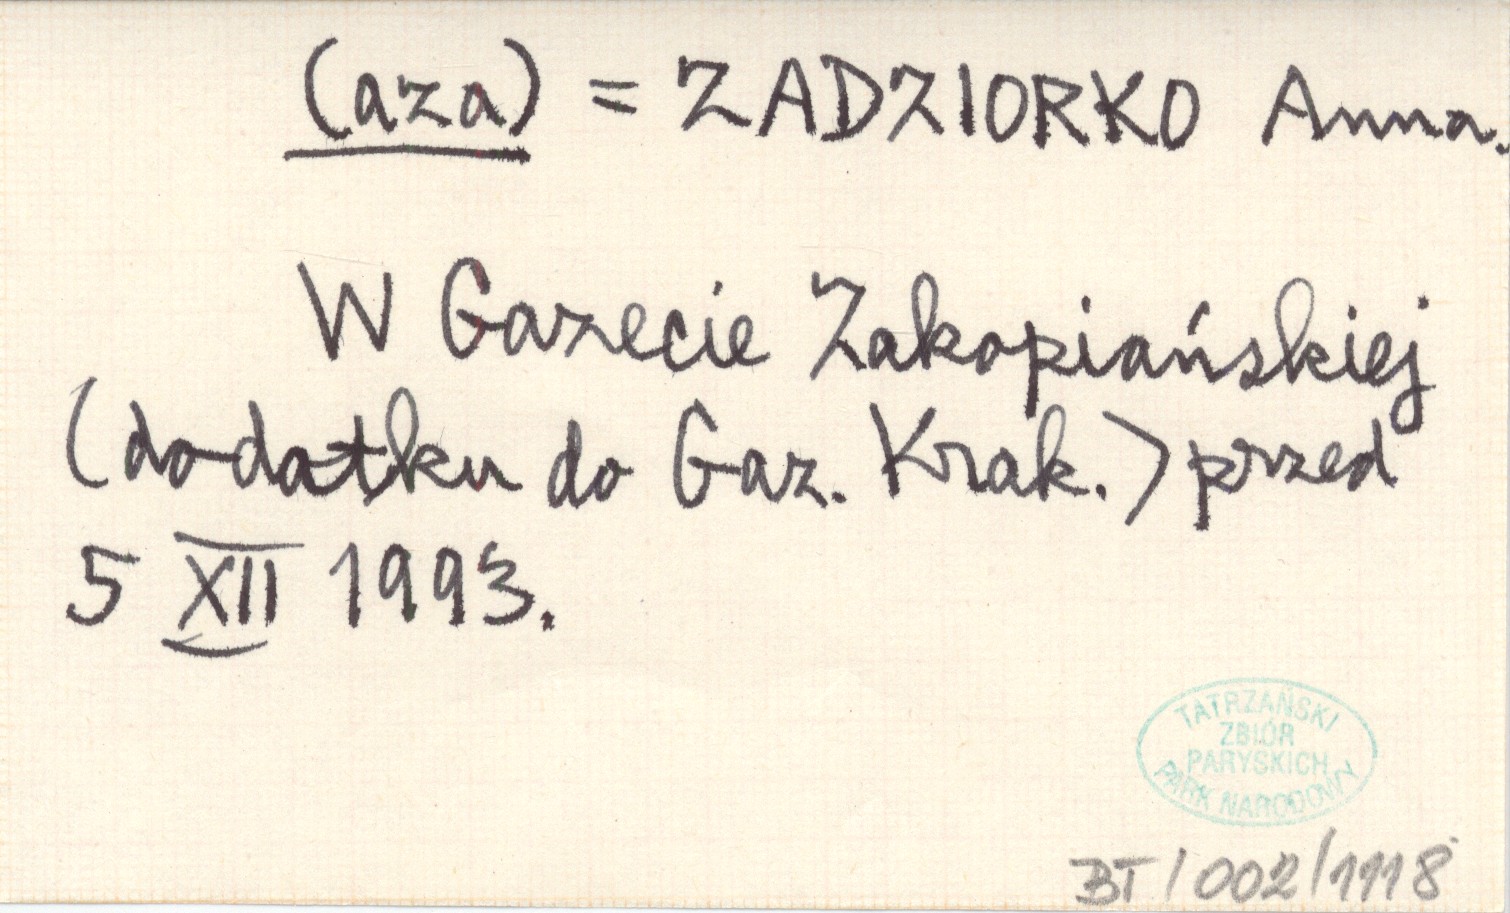 (aza) = ZADZIORKO Anna.
W Gazecie Zakopiańskiej
(dodatku do Gaz. Krak.) przed
5 XII 1993.
TATRZAŃSKI
ZBIÓR
PARYSKICH
PARK NARODOWY
BT/002/1118